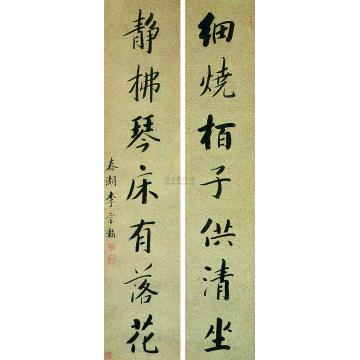 细烧栢子供清坐
静拂琴床有落花
春湖李宗瀚